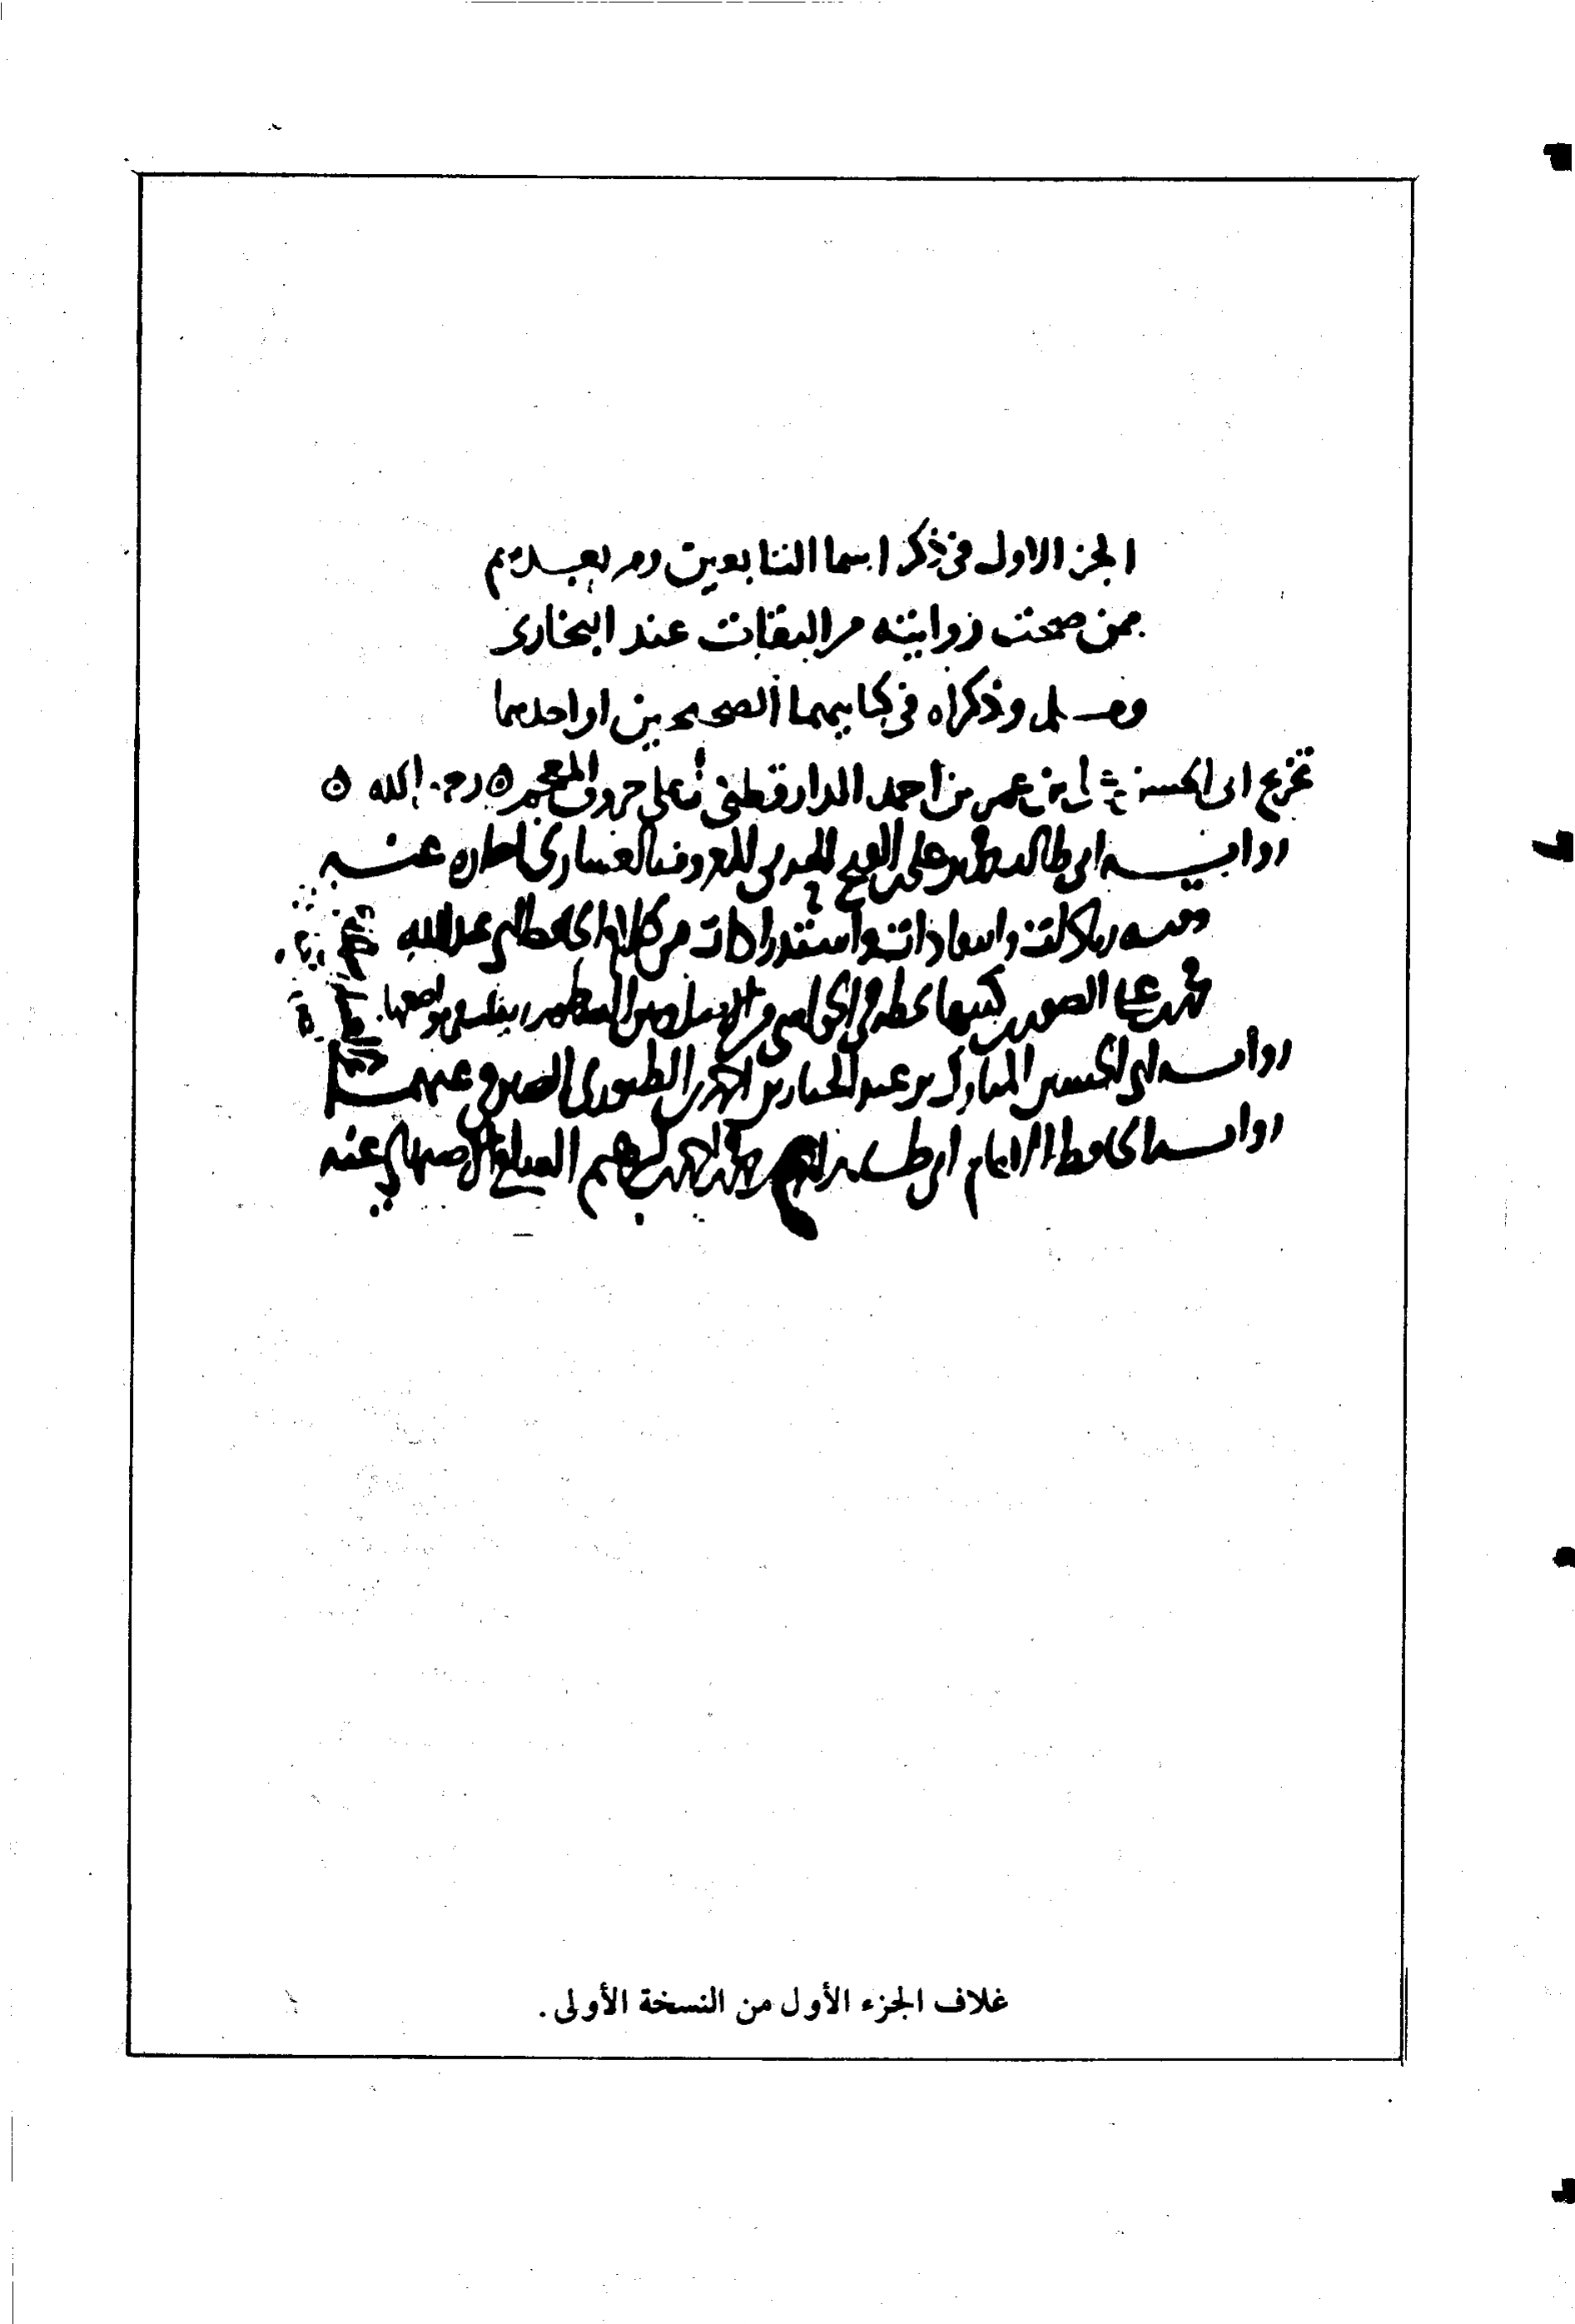 الجز الاول في ذكر اسما التابعين ومن بعدهم
ممن صحت روايته من الثقات عند البخاري
ومسلم وذكراه في كتابيهما الصحيحين او احدهما
تخريج ابي الحسن علي بن عمر بن احمد الدارقطني على حروف المعجم رحمه الله
رواية ابي طالب محمد بن علي بن الفتح الحربي المعروف بالعشاري اجازه عنه
وفيه واستدراكات من كلام الحافظ ابي عبد الله
محمد بن علي الصوري كتبها بخطه في الحواشي
رواية ابي الحسين المبارك بن عبد الجبار بن احمد الطيوري الصيرفي عنهما
رواية الحافظ الامام ابي طاهر احمد بن محمد بن احمد بن ابرهيم السلفي الاصبهاني عنه
غلاف الجزء الأول من النسخة الأولى .